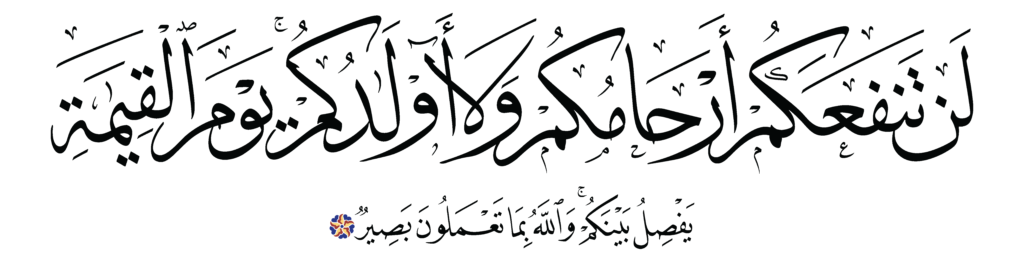 لَن تَنفَعَكُمْ أَرْحَامُكُمْ وَلَا أَوْلَٰدُكُمْ ۚ يَوْمَ ٱلْقِيَٰمَةِ
يَفْصِلُ بَيْنَكُمْ ۚ وَٱللَّهُ بِمَا تَعْمَلُونَ بَصِيرٌ